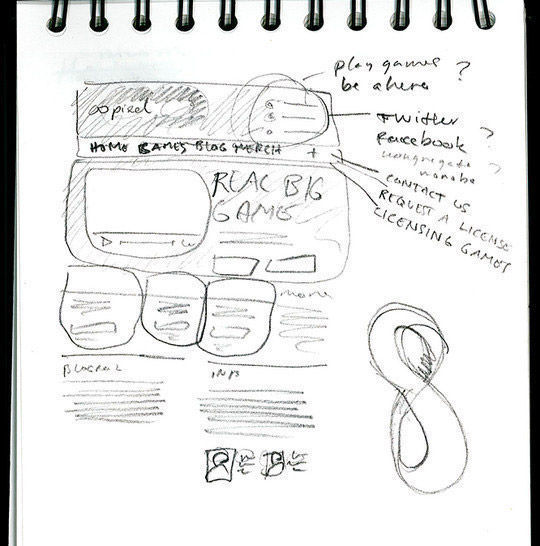 play games ?
be a hero
∞pixel
twitter
facebook ?
kongregate ?
HOME GAMES BLOG MERCH +
CONTACT US
REQUEST A LICENSE
LICENSING GAMES
REAL BIG
GAME
more
BLOGROLL
INFO